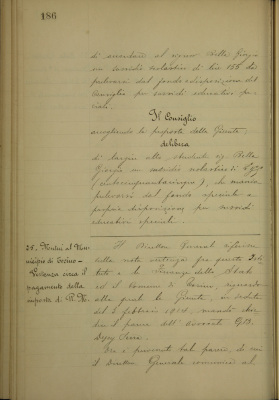 186
di accordare al signor Bella Giorgio
un sussidio scolastico di lire 155 da
prelevarsi dal fondo a disposizione del
Consiglio per sussidi educativi spe-
ciali.
Il Consiglio
accogliendo la proposta della Giunta,
delibera
di largire allo studente sig. Bella
Giorgio un sussidio scolastico di £ 155
(centocinquantacinque), che manda
prelevarsi dal fondo speciale a
propria disposizione per sussidi
educativi speciali.
25. Mutui al Mu-
nicipio di Torino -
Vertenza circa il
pagamento della
imposta di R. M.
Il Direttore Generale riferisce
sulla nota vertenza fra questo Isti-
tuto e le Finanze dello Stato
ed il Comune di Torino, riguardo
alla quale la Giunta, in seduta
del 5 febbraio 1914, mandò chie-
dersi il parere dell' avvocato
Ora è pervenuto tale parere, di cui
il Direttore Generale comunica al